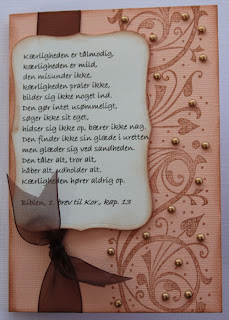 Kærligheden er tålmodig,
kærligheden er mild,
den misunder ikke,
kærligheden praler ikke,
bilder sig ikke noget ind.
Den gør intet usømmeligt,
søger ikke sit eget,
hidser sig ikke op, bærer ikke nag.
Den finder ikke sin glæde i uretten
men glæder sig ved sandheden.
Den tåler alt, tror alt,
håber alt, udholder alt.
Kærligheden hører aldrig op.
Biblen, 1. brev til Kor., kap. 13